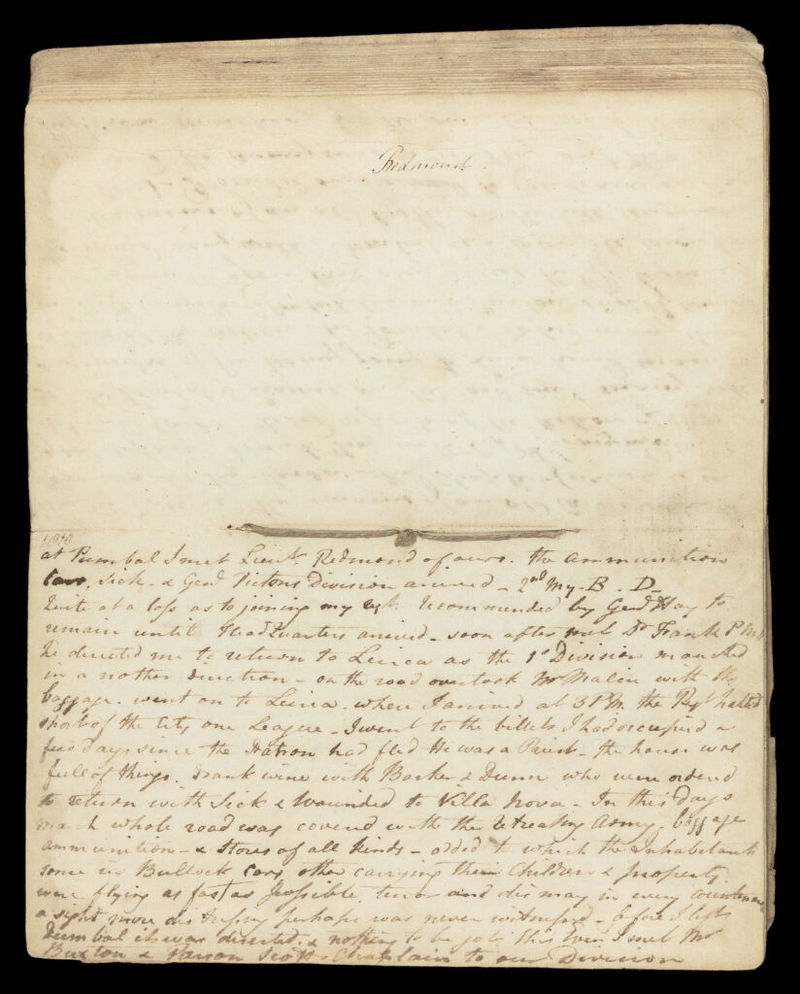 Redmond
1810
at Pumbal I met Lieut. Redmond of ours. the ammunition
Cars, Sick - & Genl Pictons Division arrived - 2nd My. B. D-
Quite at a loss as to joining my regt. recommended by Genl Hay to
remain until Head Quarters arrived - soon after met Dr Frank P M
he directed me to return to Leiria as the 1st Division marched
in a nother direction - on the road overtook Mr Malin with the
baggage. went on to Leiria. where I arrived at 3 P.M. the Regt halted
short of the City one League - I went to the billets I had occupied a
few days since the Patron had fled He was a Priest - the house was
full of things. drank wine with Barker & Dunn who were ordered
to return with Sick & Wounded to Villa Nova - In this days
march whole road was covered with the retreating Army. baggage
ammunition - & Stores of all kinds - added to which the Inhabitants
some in Bullock Cars other carrying their Children & property
were flying as fast as possible. terror and dismay in every countenance
a sight more distressing perhaps was never witnessed - before I left
Pumbal it was deserted. & nothing to be got. this Even I met Mr
Buxton & Parson Scott - Chaplain to our Division